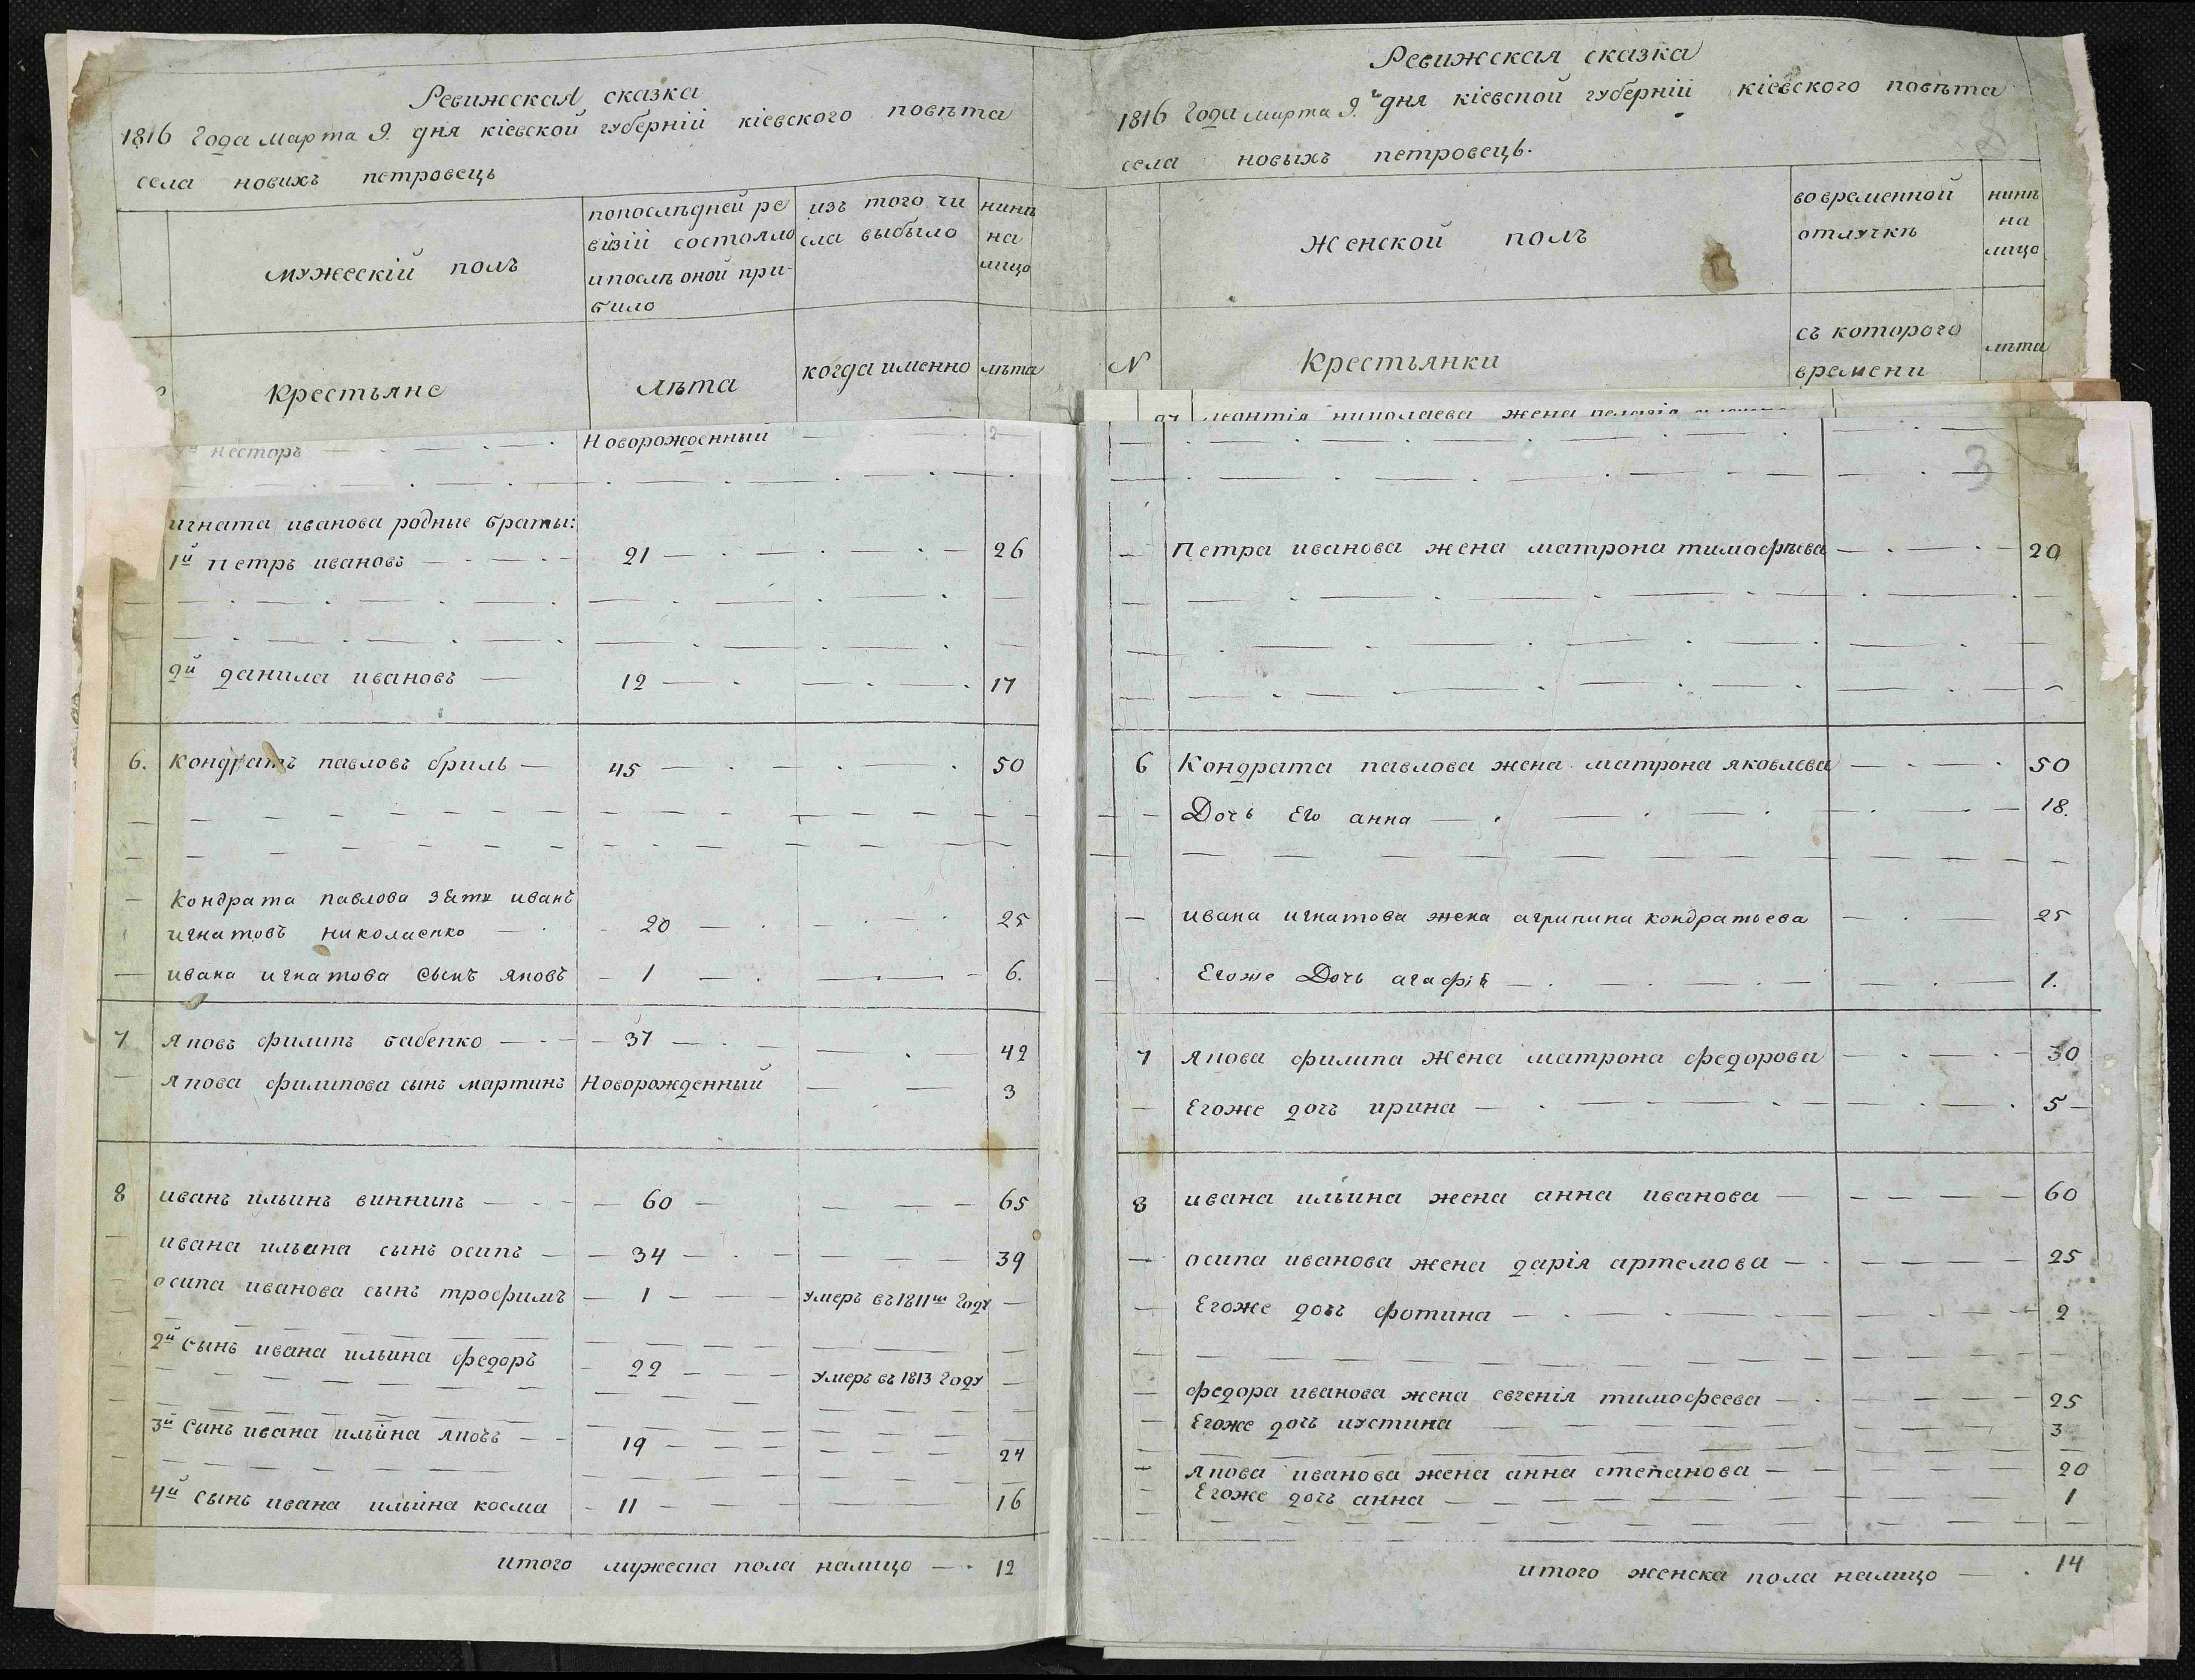 Ревижская сказка
1816 года марта 9. дня кіевской губерніи кіевского повѣта
села новихъ петровець
мужескій полъ
попослѣдней ре
візіи состояло
ипослѣ оной при-
било
изъ того чи
сла выбыло
нинѣ
на
лицо
Крестьяне
лѣта
когда именно
лѣта
несторъ
Новорожденный
2
игната иванова родные браты:
1й петръ ивановъ 21 26
2й данила ивановъ 12 17
6. Кондратъ павловъ бриль 45 50
Кондрата павлова зять иванъ
игнатовъ николаенко 20 25
ивана игнатова сынъ яковъ 1 6.
7 яковъ филипъ бабенко 37 42
якова филипова сынъ мартинъ Новорожденный 3
8 иванъ ильинъ винникъ 60 65
ивана ильина сынъ осипъ 34 39
осипа иванова сынъ трофимъ 1 умеръ въ 1811м году
2й сынъ ивана ильина федоръ 22 умеръ въ 1813 году
3й сынъ ивана ильина яковъ 19 24
4й сынъ ивана ильина косма 11 16
итого мужеска пола налицо 12
Ревижская сказка
1816 года марта 9.й дня кіевской губерніи кіевского повѣта
села новыхъ петровець.
Женской полъ
вовременной
отлучкѣ
нинѣ
на
лицо
N
Крестьянки
съ которого
времени
лѣта
леонтія николаева жена пелагія
3
Петра иванова жена матрона тимофѣева 20
6 Кондрата павлова жена матрона яковлева 50
Дочь Его анна 18.
ивана игнатова жена агрипина кондратьева 25
Егоже Дочь агафія 1.
7 якова филипа жена матрона федорова 30
Егоже дочъ ирина 5
8 ивана ильина жена анна иванова 60
осипа иванова жена дарія артемова 25
Егоже дочъ фотина 2
федора иванова жена евгенія тимофеева 25
Егоже дочъ иустина 3
якова иванова жена анна степанова 20
Егоже дочъ анна 1
итого женска пола налицо 14